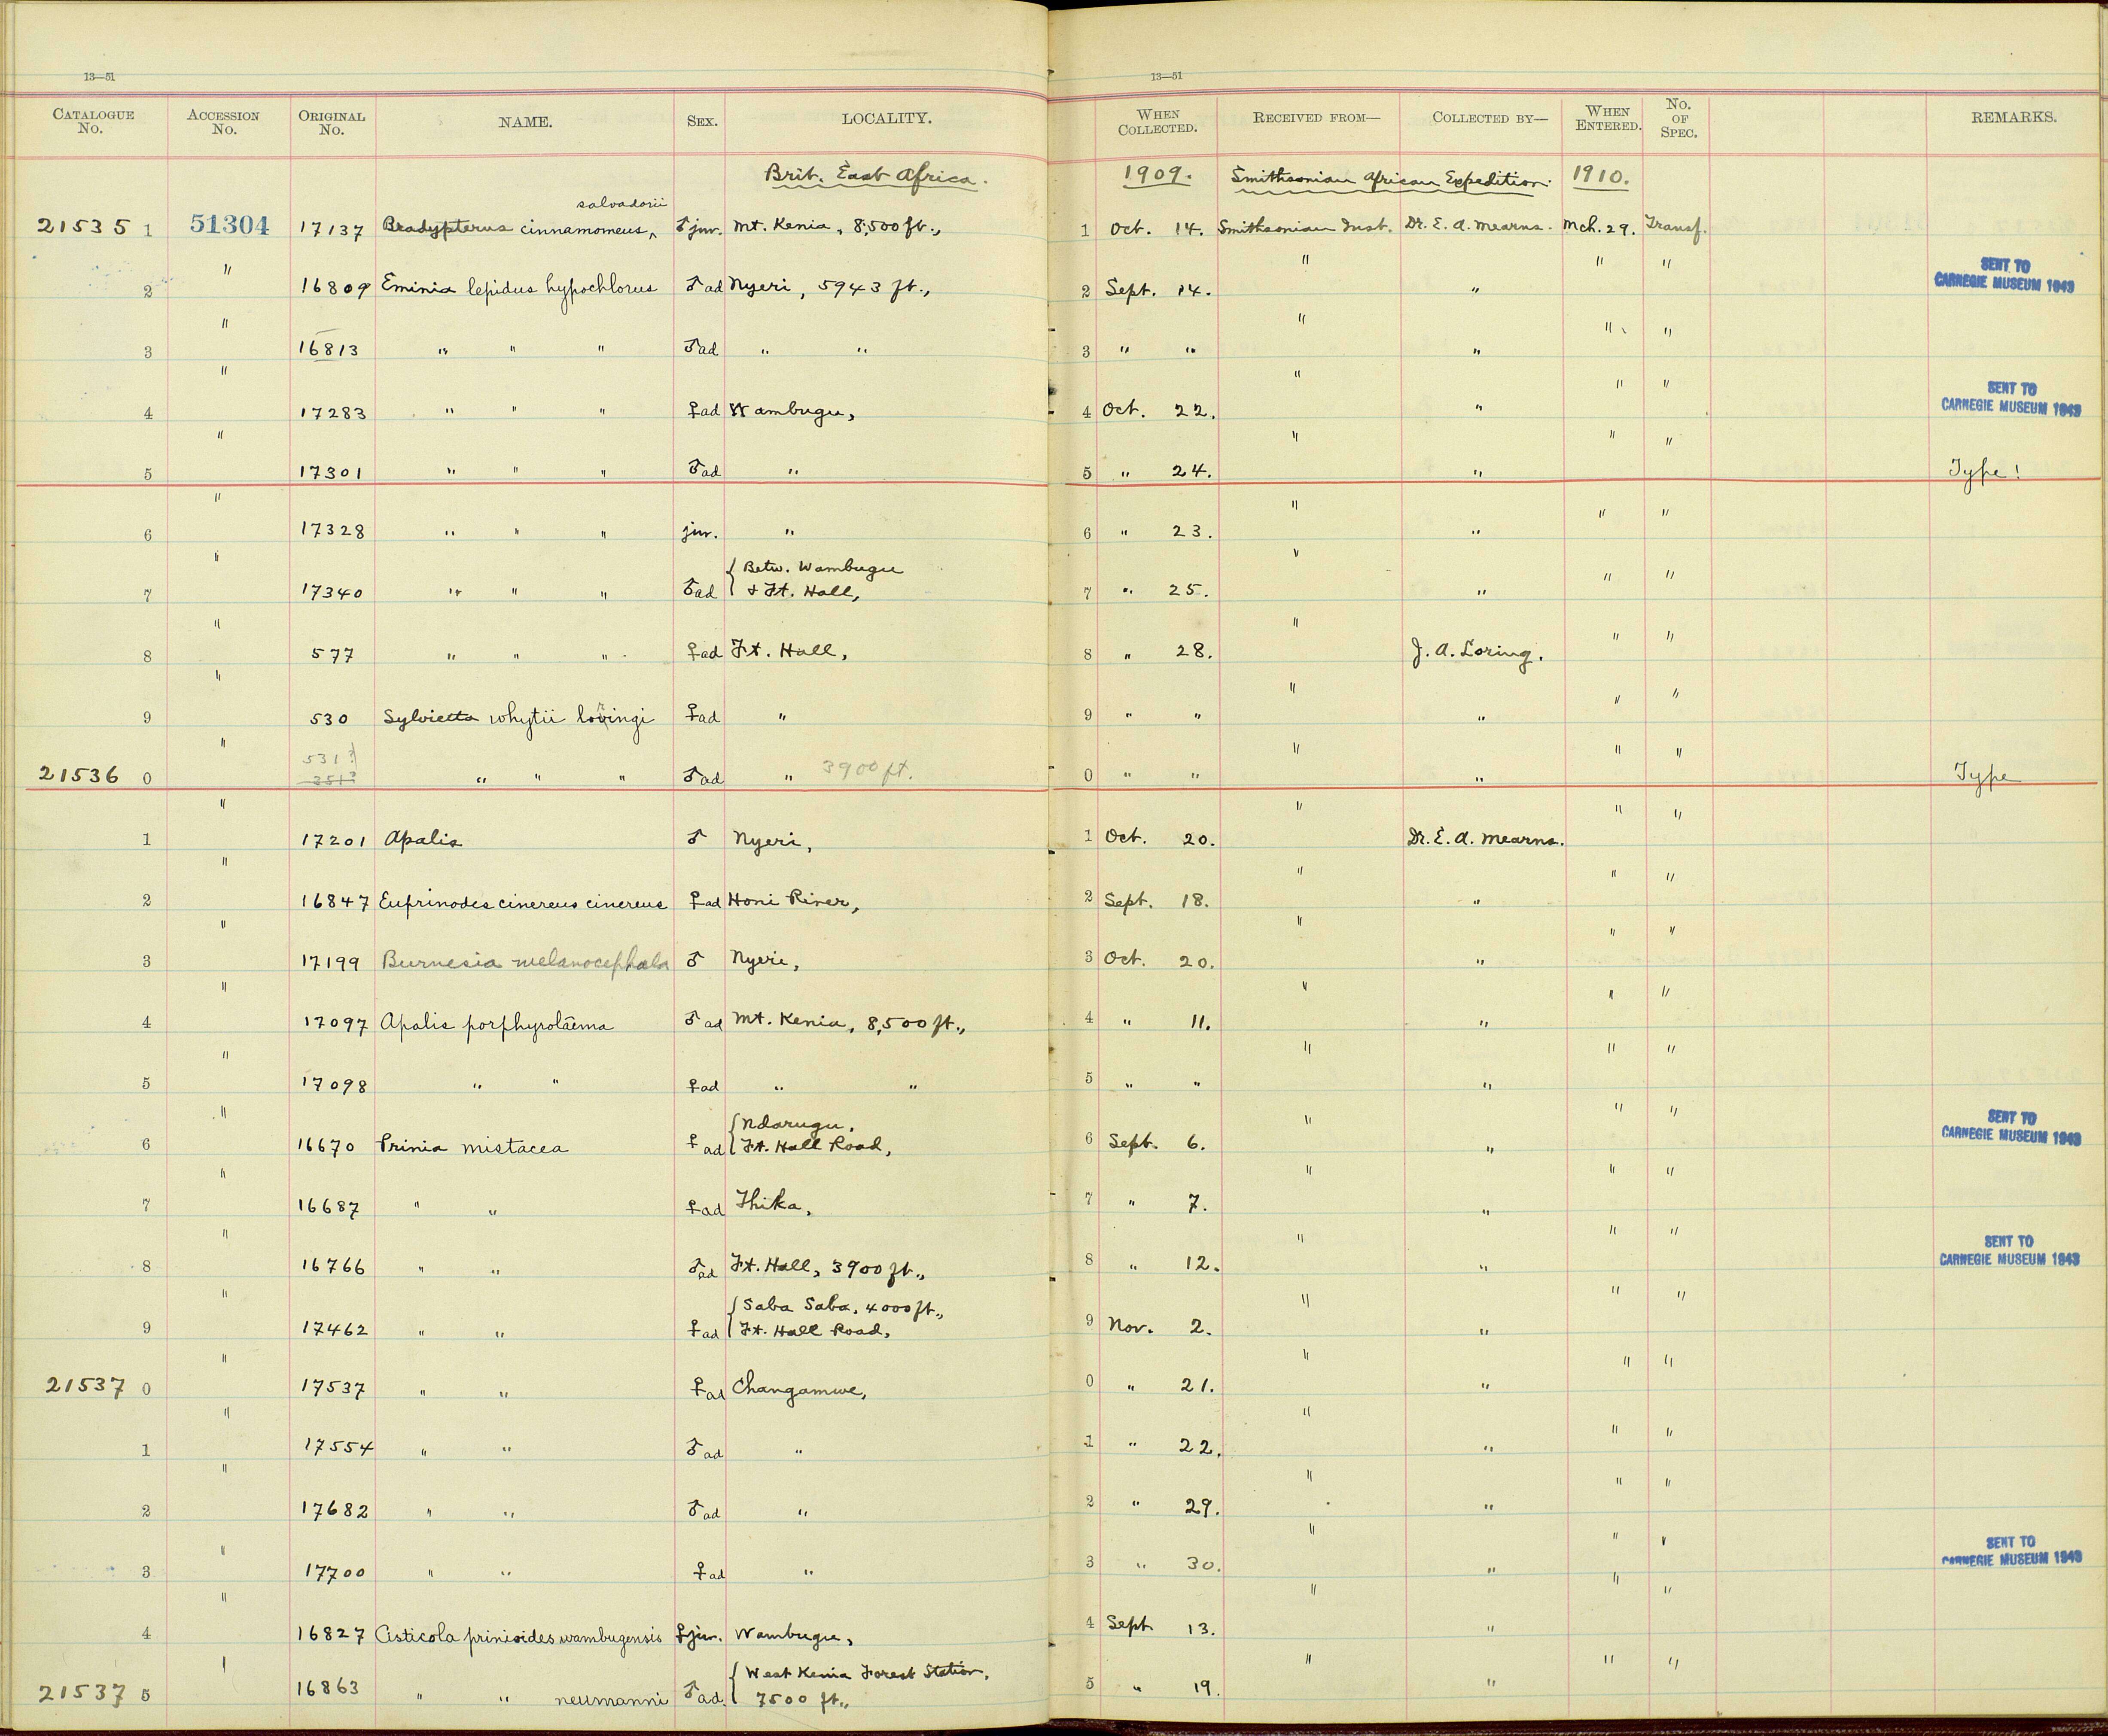 13—51
13—51
CATALOGUE No. ACCESSION No. ORIGINAL No. NAME. SEX. LOCALITY. WHEN COLLECTED. RECEIVED FROM— COLLECTED BY— WHEN ENTERED. No. OF SPEC. REMARKS.
Brit. East Africa. 1909. Smithsonian African Expedition. 1910.
salvadorii
21535 1 51304 17137 Bradypterus cinnamomeus, ♂ juv. Mt. Kenia, 8,500 ft., 1 Oct. 14. Smithsonian Inst. Dr. E. A. Mearns. Mch. 29. Transf.
2 " 16809 Eminia lepidus hypochlorus ♂ ad Nyeri, 5943 ft., 2 Sept. 14. " " " " SENT TO CARNEGIE MUSEUM 1943
3 " 16813 " " " ♂ ad " " 3 " " " " " "
4 " 17283 " " " ♀ ad Wambugu, 4 Oct. 22. " " " " SENT TO CARNEGIE MUSEUM 1943
5 " 17301 " " " ♂ ad " 5 " 24. " " " " Type!
6 " 17328 " " " juv. " 6 " 23. " " " "
7 " 17340 " " " ♂ ad { Betw. Wambugu
& Ft. Hall, 7 " 25. " " " "
8 " 577 " " " ♀ ad Ft. Hall, 8 " 28. " J. A. Loring. " "
9 " 530 Sylvietta whytii loringi ♀ ad " 9 " " " " " "
531?
21536 0 " 351? " " " ♂ ad " 3900 ft. 0 " " " " " " Type
1 " 17201 Apalis ♂ Nyeri, 1 Oct. 20. " Dr. E. A. Mearns. " "
2 " 16847 Euprinodes cinereus cinereus ♀ ad Honi River, 2 Sept. 18. " " " "
3 " 17199 Burnesia melanocephala ♂ Nyeri, 3 Oct. 20. " " " "
4 " 17097 Apalis porphyrolāema ♂ ad Mt. Kenia, 8,500 ft., 4 " 11. " " " "
5 " 17098 " " ♀ ad " " 5 " " " " " "
6 " 16670 Prinia mistacea ♀ ad { Ndarugu,
Ft. Hall Road, 6 Sept. 6. " " " " SENT TO CARNEGIE MUSEUM 1943
7 " 16687 " " ♀ ad Thika, 7 " 7. " " " "
8 " 16766 " " ♂ ad Ft. Hall, 3900 ft., 8 " 12. " " " " SENT TO CARNEGIE MUSEUM 1943
9 " 17462 " " ♀ ad { Saba Saba, 4000 ft.,
Ft. Hall Road, 9 Nov. 2. " " " "
21537 0 " 17537 " " ♀ ad Changamwe, 0 " 21. " " " "
1 " 17554 " " ♂ ad " 1 " 22. " " " "
2 " 17682 " " ♂ ad " 2 " 29. " " " "
3 " 17700 " " ♀ ad " 3 " 30. " " " " SENT TO CARNEGIE MUSEUM 1943
4 " 16827 Cisticola prinioides wambugensis ♀ juv. Wambugu, 4 Sept 13. " " " "
21537 5 " 16863 " " neumanni ♂ ad. { West Kenia Forest Station,
7500 ft., 5 " 19. " " " "